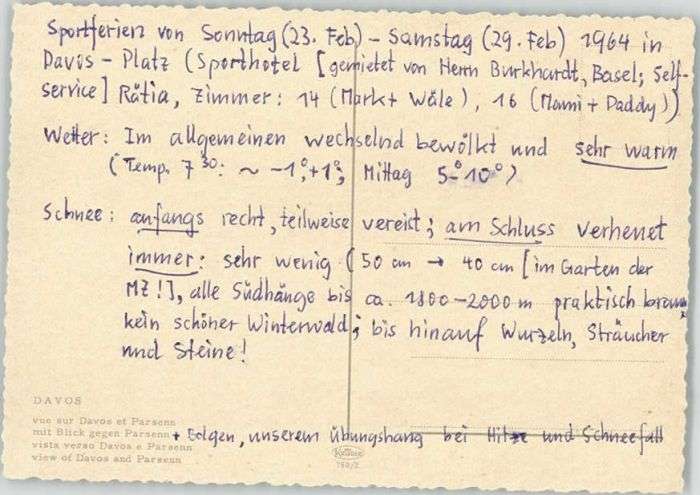 Sportferien von Sonntag (23. Feb) – Samstag (29. Feb) 1964 in
Davos – Platz (Sporthotel [gemietet von Herrn Burkhardt, Basel; Self-
service] Rätia, Zimmer: 14 (Mark+ Wäle), 16 (Mami + Daddy))
Wetter: Im allgemeinen wechselnd bewölkt und sehr warm
(Temp. 7³⁰: ~ -1°,+1°; Mittag 5-10°)
Schnee: anfangs recht, teilweise vereist; am Schluss
immer: sehr wenig (50 cm → 40 cm [im Garten der
MZ!], alle Südhänge bis ca. 1800–2000 m praktisch braun
kein schöner Winterwald; bis hinauf Wurzeln, Sträucher
und Steine!
DAVOS
vue sur Davos et Parsenn
mit Blick gegen Parsenn
vista verso Davos e Parsenn
view of Davos and Parsenn
+ Bolgen, unserem Übungshang bei Hitze und Schneefall